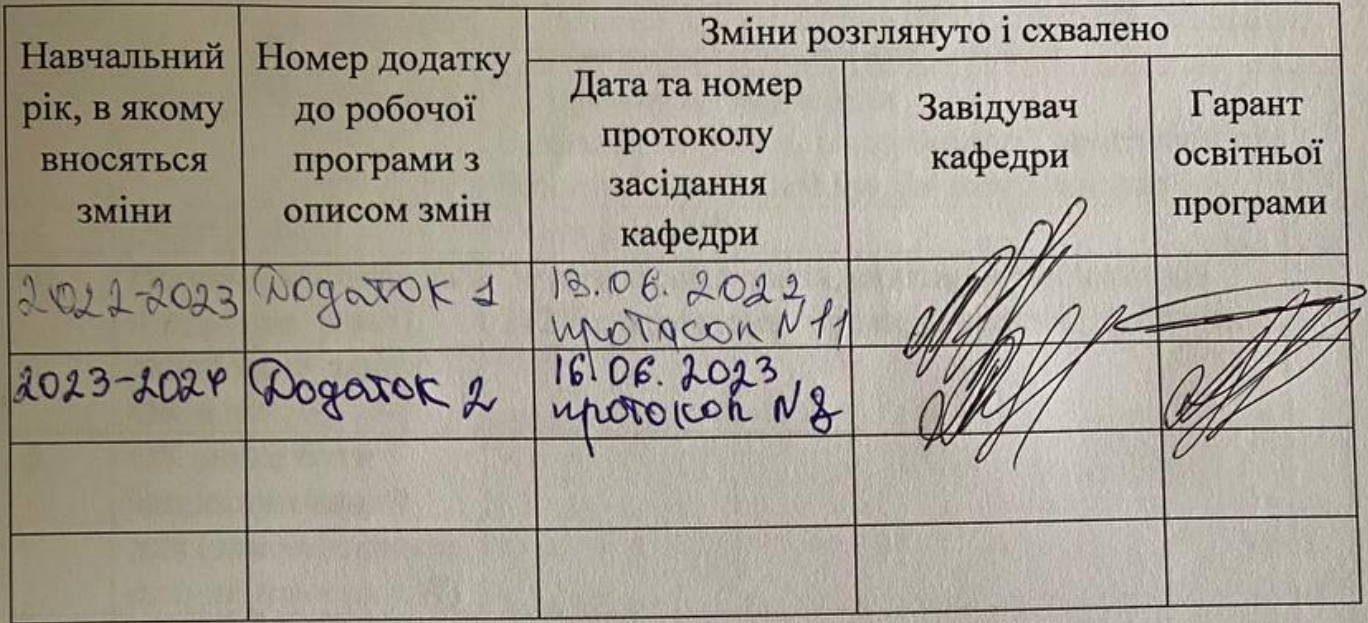 Навчальний
рік, в якому
вносяться
зміни
Номер додатку
до робочої
програми з
описом змін
Зміни розглянуто і схвалено
Дата та номер
протоколу
засідання
кафедри
Завідувач
кафедри
Гарант
освітньої
програми
2022-2023
Додаток 1
13.06. 2022
протокол N 11
2023-2024
Додаток 2
16.06. 2023
протокол N 8